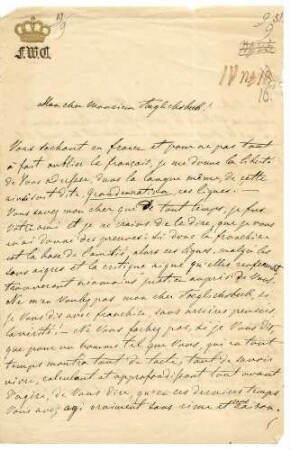 F.W.C.
Mon cher Monsieur Täglichsbeck!
Vous sachant en france et pour ne pas tout
à fait oublier le français, je me donne la liberté
de Vous adresser, dans la langue même, de cette
ainsi dite, grande nation, ces lignes! —
Vous savez mon cher que de tout temps, je fus
votre ami et je ne crains de le dire, que je vous
en ai donné des preuves: si donc la franchise
est la base de l'amitié, alors ces lignes, malgré les
sons aigres et la critique aigue qu'elles
trouveront néanmoins auprès de Vous.
Ne m'en voulez pas mon cher Täglichsbeck, si
je Vous dis avec franchise, sans arrière pensée,
la vérité: — Ne Vous fachez pas, si je Vous dis,
que pour un homme tel que Vous, qui en tout
temps montra tant de tacte, tant de savoir
vivre, calculant et approfondissant tout avant
d'agir, de Vous dire, qu'en ces derniers temps
Vous avez agi vraiment sans rime et sans raison.